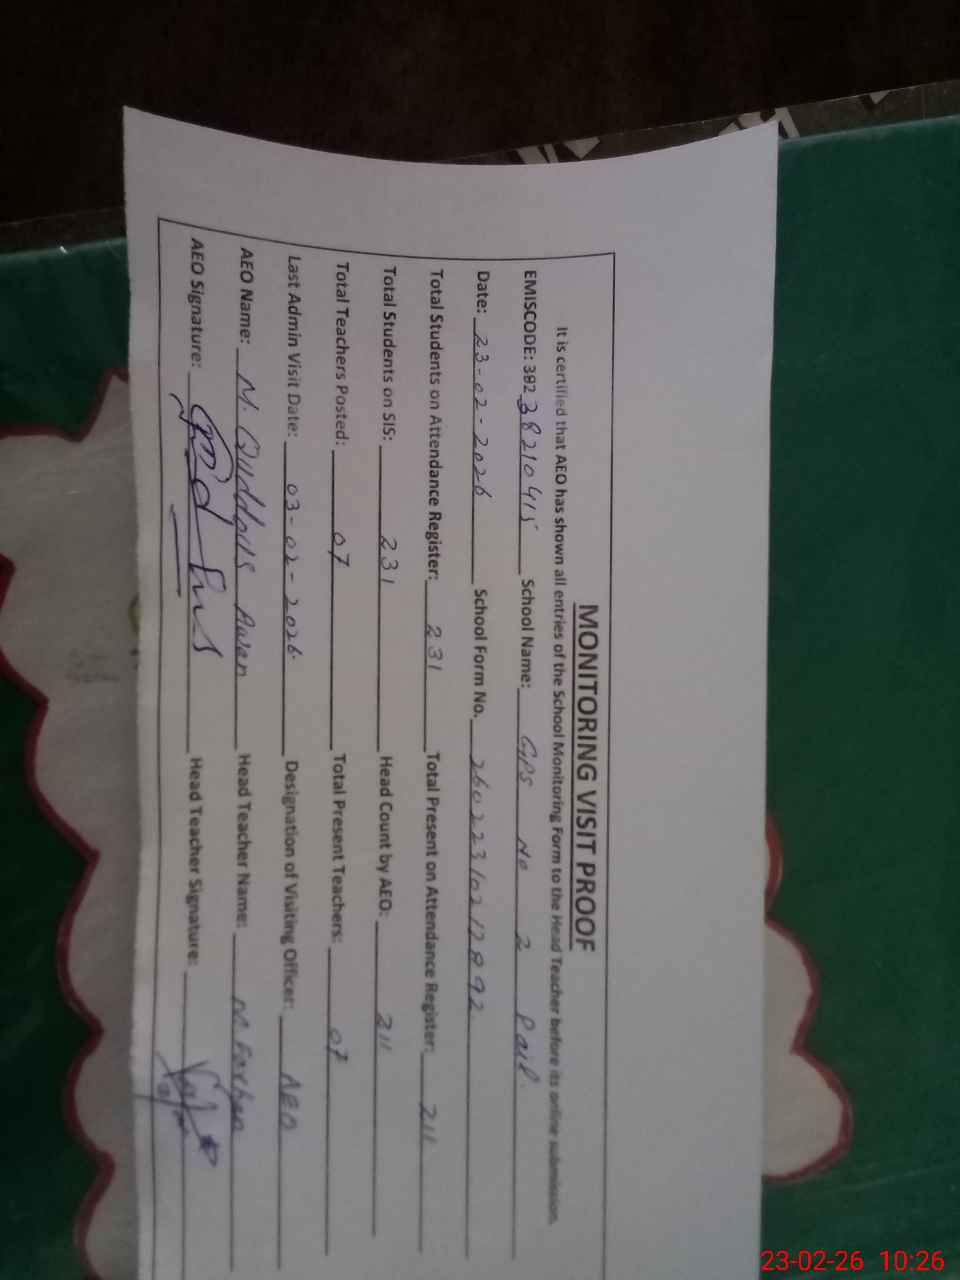 MONITORING VISIT PROOF
It is certified that AEO has shown all entries of the School Monitoring Form to the Head Teacher before its online submission.
EMISCODE: 382 38210415 School Name: GPS No 2 Pail
Date: 23-02-2026 School Form No. 26022310217892
Total Students on Attendance Register: 231 Total Present on Attendance Register: 211
Total Students on SIS: 231 Head Count by AEO: 211
Total Teachers Posted: 07 Total Present Teachers: 07
Last Admin Visit Date: 03-02-2026 Designation of Visiting Officer: AEO
AEO Name: M. Quddous Head Teacher Name: M. Farhan
AEO Signature: Head Teacher Signature:
23-02-26 10:26